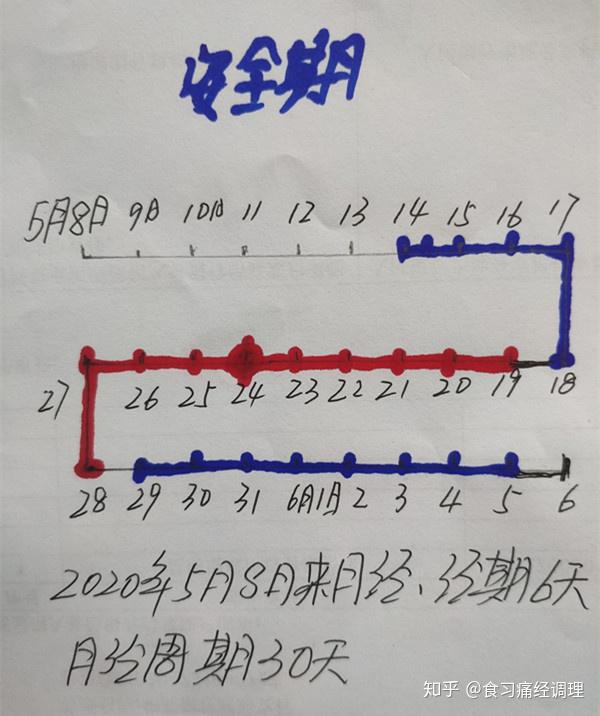 安全期
5月8日 9日 10日 11 12 13 14 15 16 17
27 26 25 24 23 22 21 20 19 18
28 29 30 31 6月1日 2 3 4 5 6
2020年5月8日来月经、经期6天
月经周期30天
知乎 @食习痛经调理